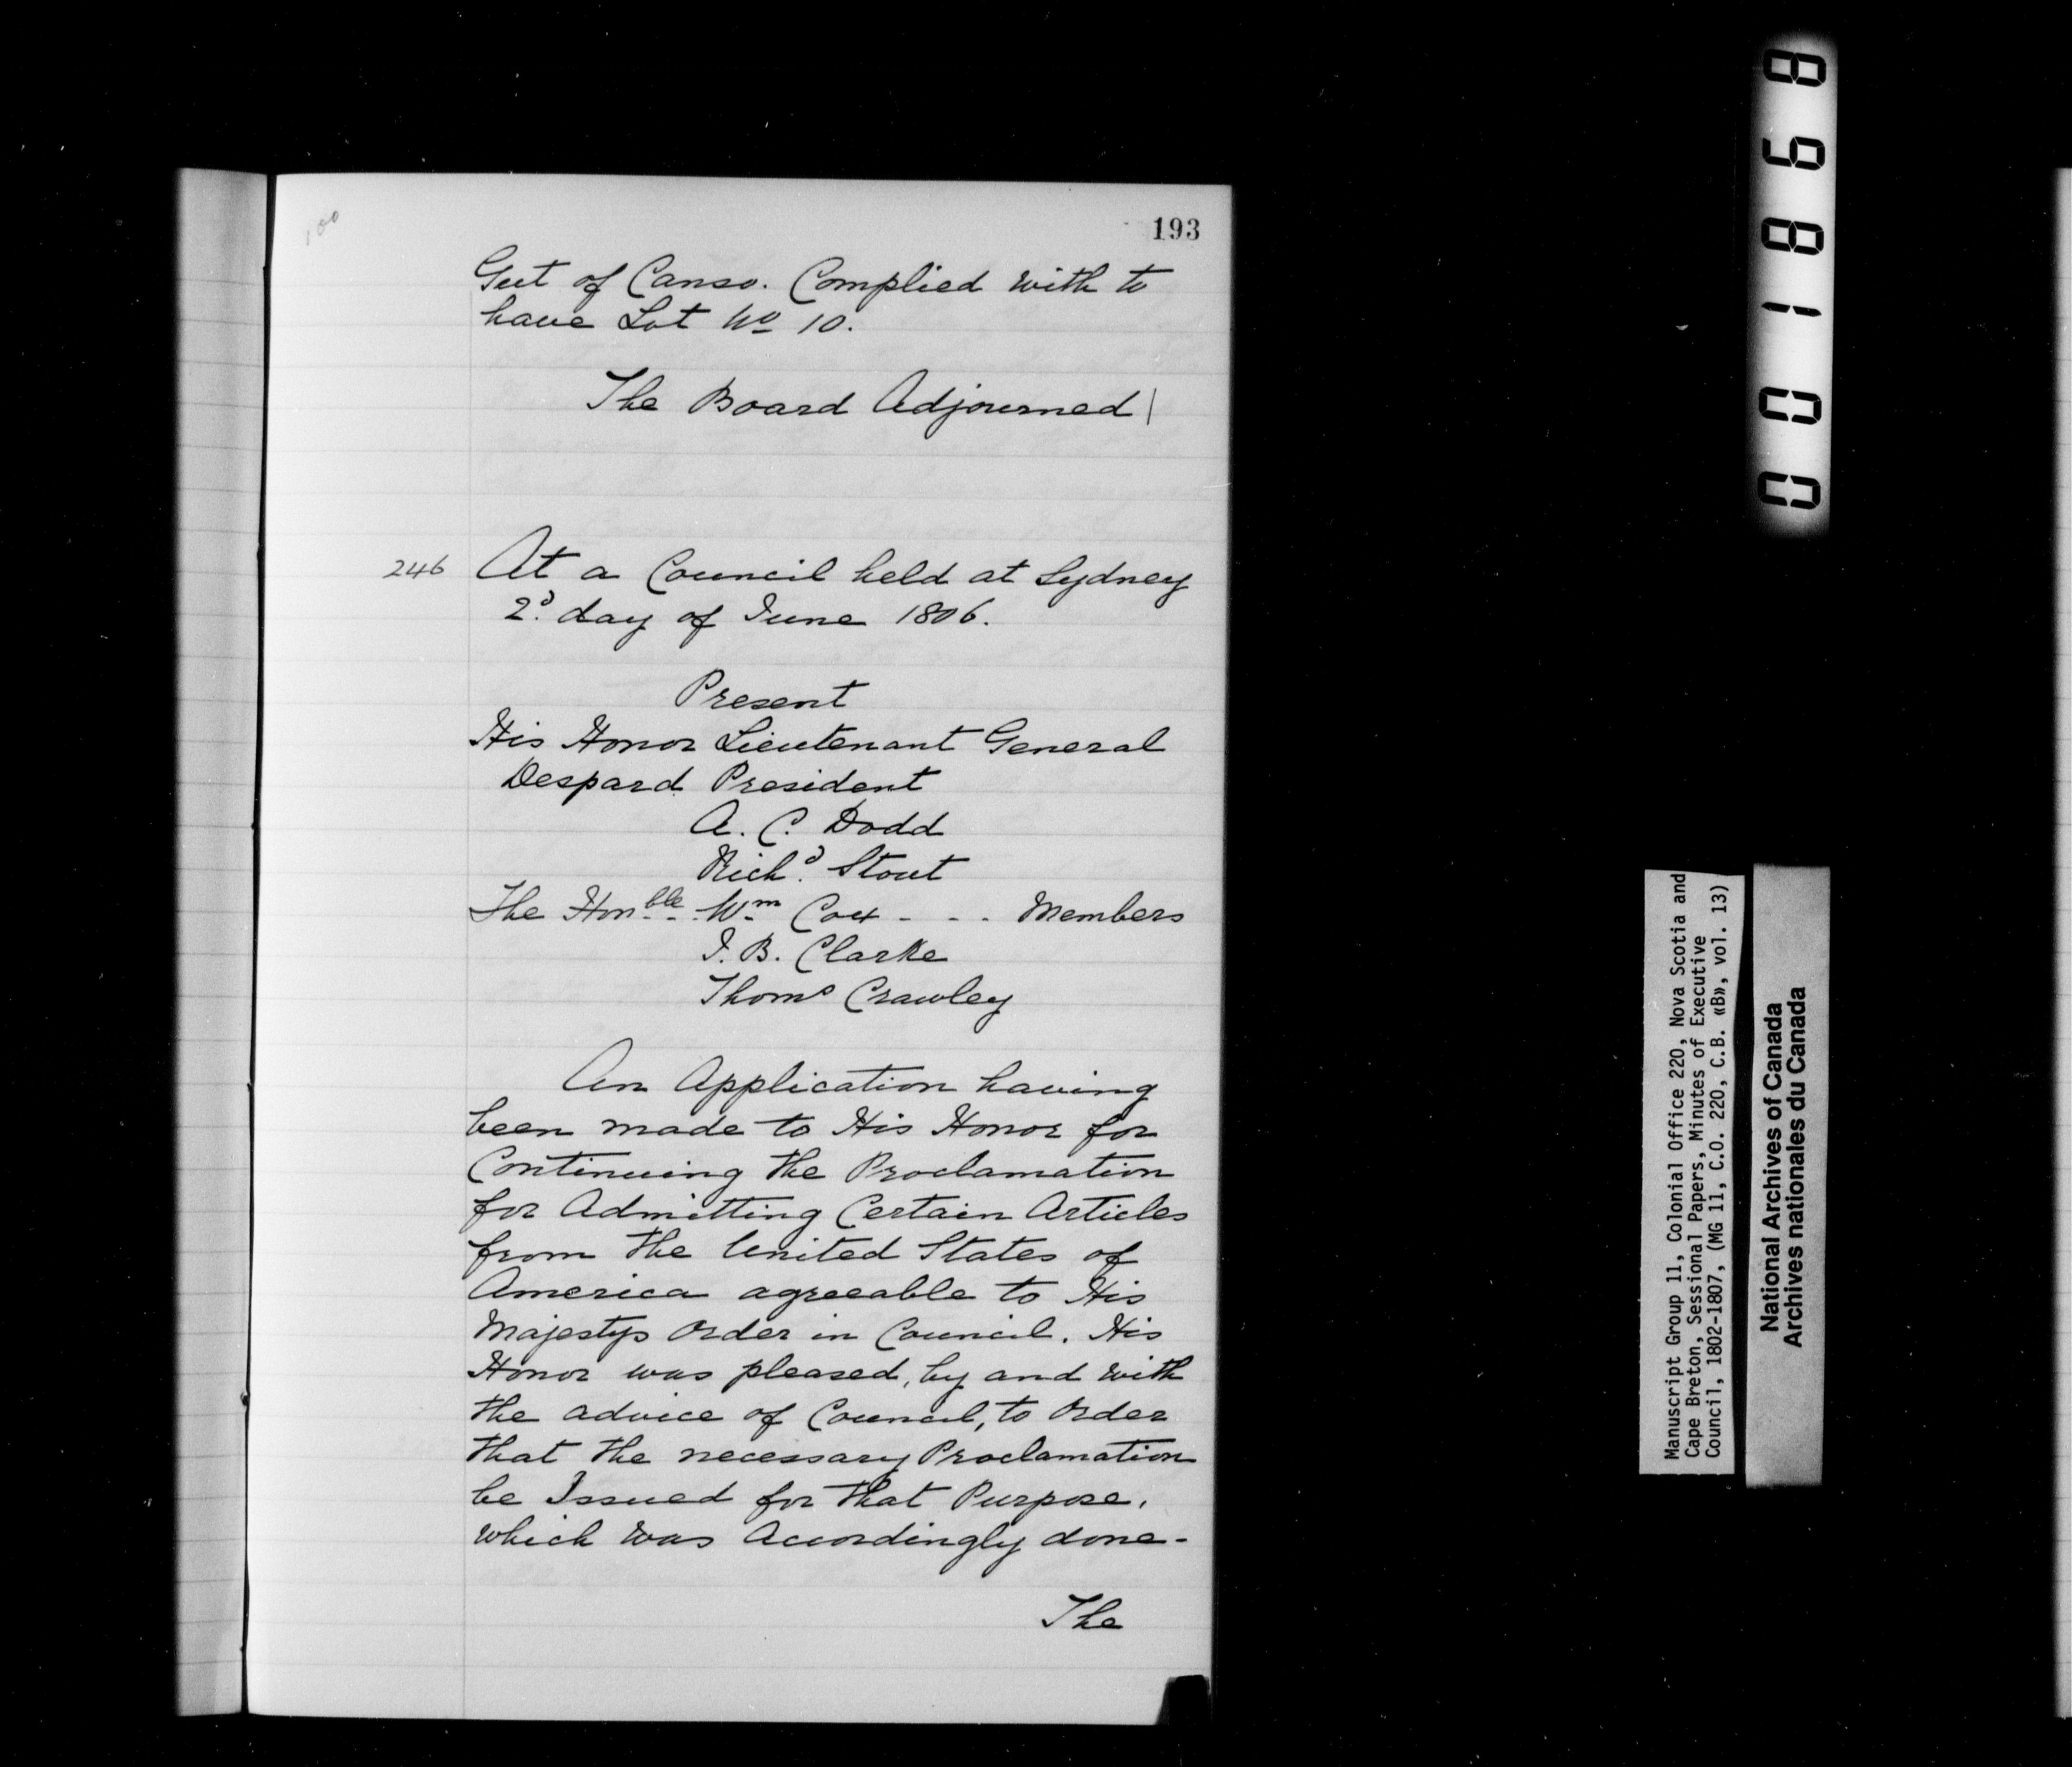 100
193
Gut of Canso. Complied with to
have Lot No 10.
The Board Adjourned
246 At a Council held at Sydney
2d. day of June 1806.
Present
His Honor Lieutenant General
Despard President
A. C. Dodd
Richd. Stout
The Honble Wm Cox - - - Members
I. B. Clarke
Thoms Crawley
An Application having
been made to His Honor for
Continuing the Proclamation
for Admitting Certain Articles
from the United States of
America agreeable to His
Majestys Order in Council. His
Honor was pleased, by and with
the advice of Council, to Order
that the necessary Proclamation
be Issued for that Purpose,
which was Accordingly done-
The
001868
Manuscript Group 11, Colonial Office 220, Nova Scotia and
Cape Breton, Sessional Papers, Minutes of Executive
Council, 1802-1807, (MG 11, C.O. 220, C.B. «B», vol. 13)
National Archives of Canada
Archives nationales du Canada